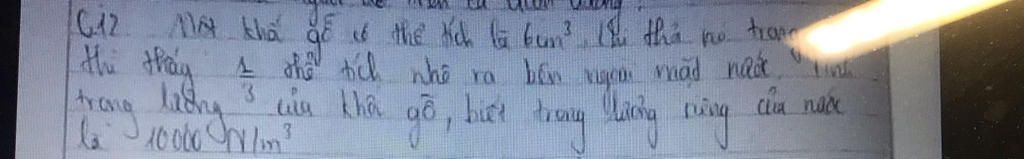 C12. Một khố gỗ có thể tích là 6cm³, khi thả nó trong
thì thấy 1/3 thể tích nhô ra bên ngoài mặt nước. Tính
trọng lượng của khối gỗ, biết trọng lượng riêng của nước
là 10000 N/m³